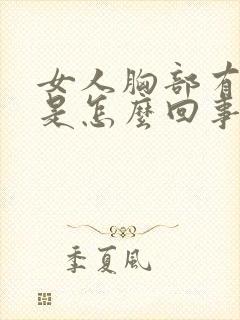 女人胸部有
是怎麼回事
季夏風